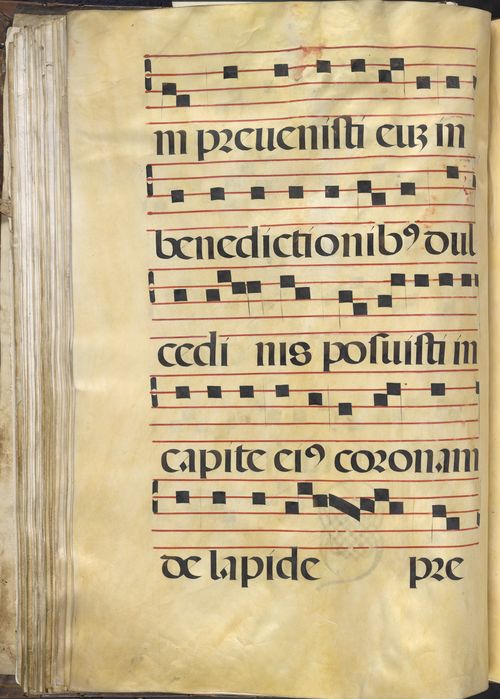 m preuenisti euȝ in
benedictionibꝰ dul
cedi nis posuisti in
capite eiꝰ coronam
de lapide pre